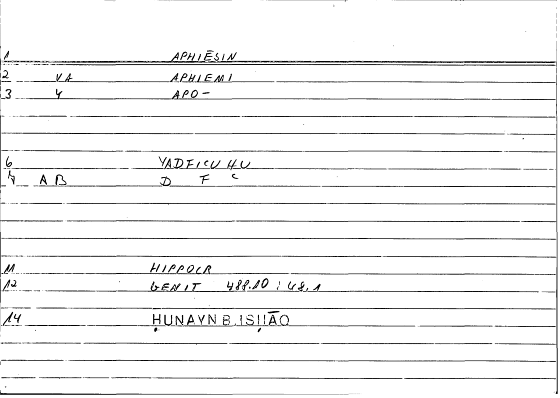 1 APHIĒSIN
2 VA APHIEMI
3 4 APO-
6 YADFIᶜU HU
7 AB D F ᶜ
11 HIPPOCR
12 GENIT 488.10 ; 48,1
14 ḤUNAYN B. ISḤĀQ